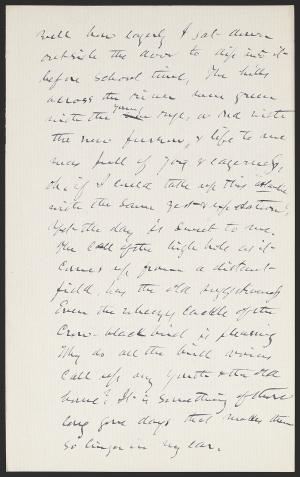 well how eagerly I sat down
outside the door to dip into it
before school time, The hills
across the river were green
with the young rye, or red with
the new furrow, & life to me
was full of joy & eagerness,
oh, if I could take up this
with the same zest & expectation!
Yet the day is sweet to me.
The call of the high hole as it
comes up from a distant
field, has the old suggestiveness
Even the wheezy cackle of the
crow-blackbird is pleasing
Why do all the bird voices
call up my youth & the old
home? It is something of those
long gone days that makes them
so linger in my ear.